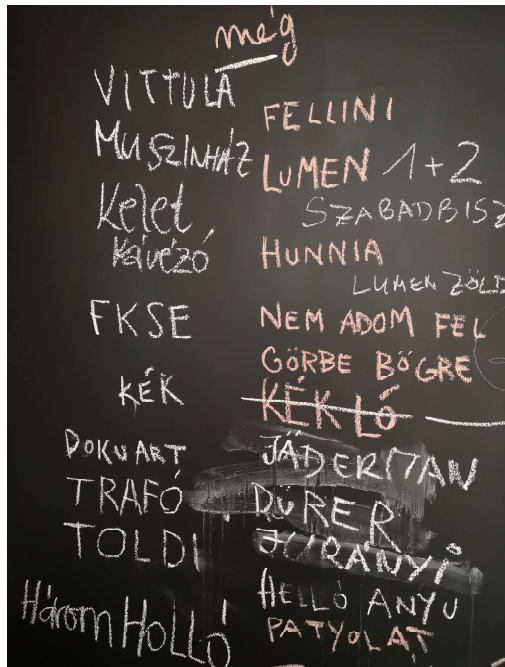 még
VITTULA
MUSZINHÁZ
Kelet
Kávézó
FKSE
KÉK
DOKUART
TRAFÓ
TOLDI
Három HOLLÓ
FELLINI
LUMEN 1+2
SZABADBISZ
HUNNIA
LUMEN ZÖLD
NEM ADOM FEL
GÖRBE BÖGRE
KÉK LÓ
JÄDERMAN
DÜRER
JURÁNYI
HELLÓ ANYU
PATYOLAT